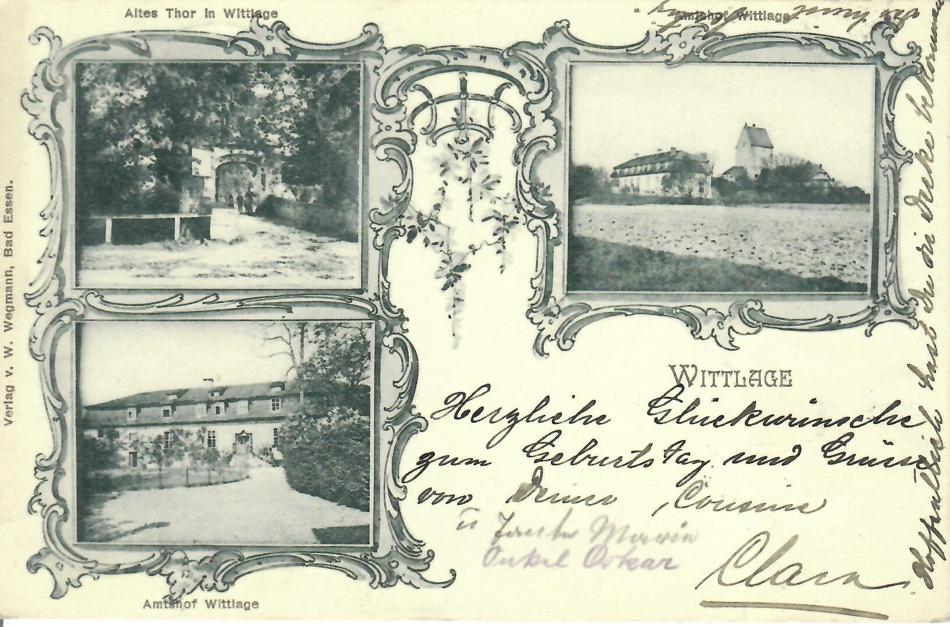 Altes Thor in Wittlage
Amtshof Wittlage
Verlag v. W. Wegmann, Bad Essen.
WITTLAGE
Herzliche Glückwünsche
zum Geburts Tag und Grüsse
von Deiner Cousine
u Tante Marie
Onkel Oskar
Clara
Hoffentlich hast du die Decke bekommen
Amtshof Wittlage